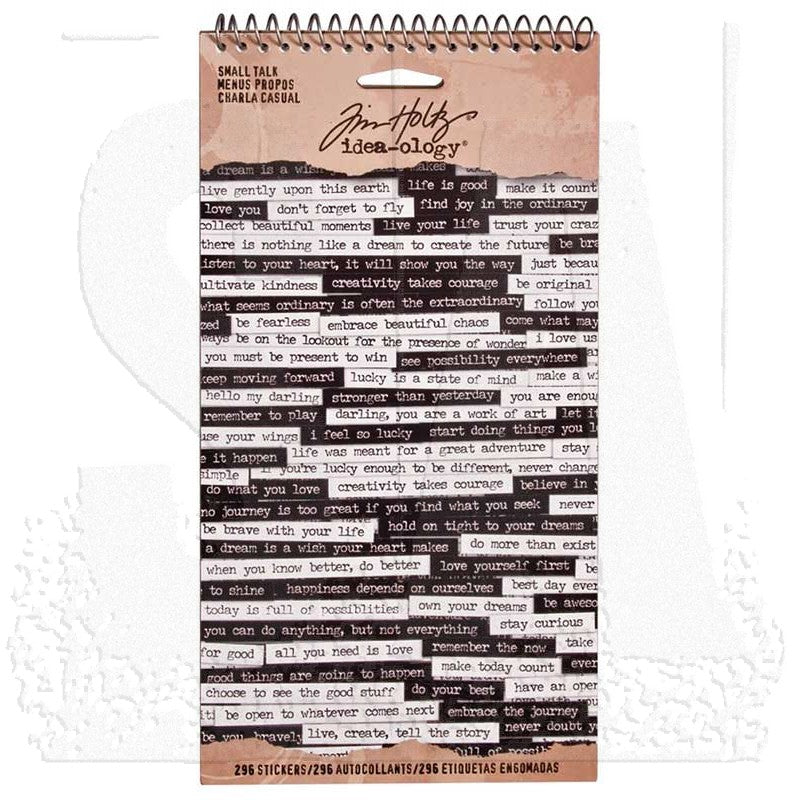 SMALL TALK
MENUS PROPOS
CHARLA CASUAL
Tim Holtz
idea-ology®
dream is a wish makes
live gently upon this earth life is good make it count
love you don't forget to fly find joy in the ordinary
collect beautiful moments live your life trust your
there is nothing like a dream to create the future be
listen to your heart, it will show you the way just
ultivate kindness creativity takes courage be original
what seems ordinary is often the extraordinary follow
zed be fearless embrace beautiful chaos come what may
ways be on the lookout for the presence of wonder i love us
you must be present to win see possibility everywhere
keep moving forward lucky is a state of mind make a
hello my darling stronger than yesterday you are
remember to play darling, you are a work of art let
use your wings i feel so lucky start doing things you
e it happen life was meant for a great adventure stay
simple if you're lucky enough to be different, never change
do what you love creativity takes courage believe in
no journey is too great if you find what you seek never
be brave with your life hold on tight to your dreams
a dream is a wish your heart makes do more than exist
when you know better, do better love yourself first be
to shine happiness depends on ourselves best day
today is full of possiblities own your dreams be
you can do anything, but not everything stay curious
for good all you need is love remember the now take
good things are going to happen make today count
choose to see the good stuff do your best have an
be open to whatever comes next embrace the journey
be you bravely live, create, tell the story never doubt
full of
296 STICKERS/296 AUTOCOLLANTS/296 ETIQUETAS ENGOMADAS